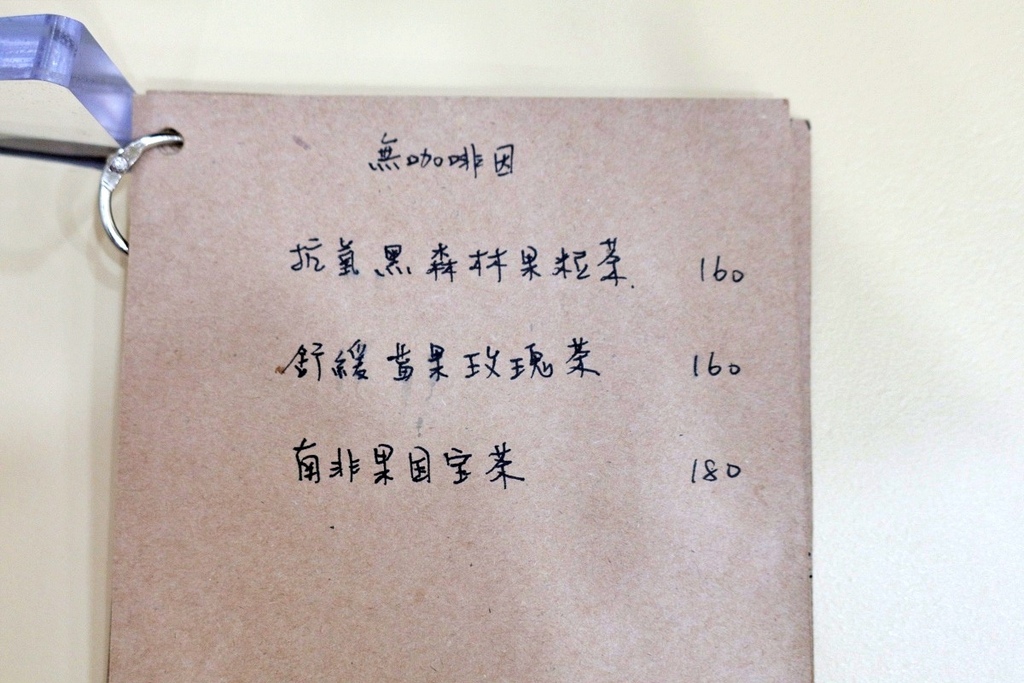 無咖啡因
抗氧黑森林果粒茶 160
舒緩莓果玫瑰茶 160
南非果国宝茶 180